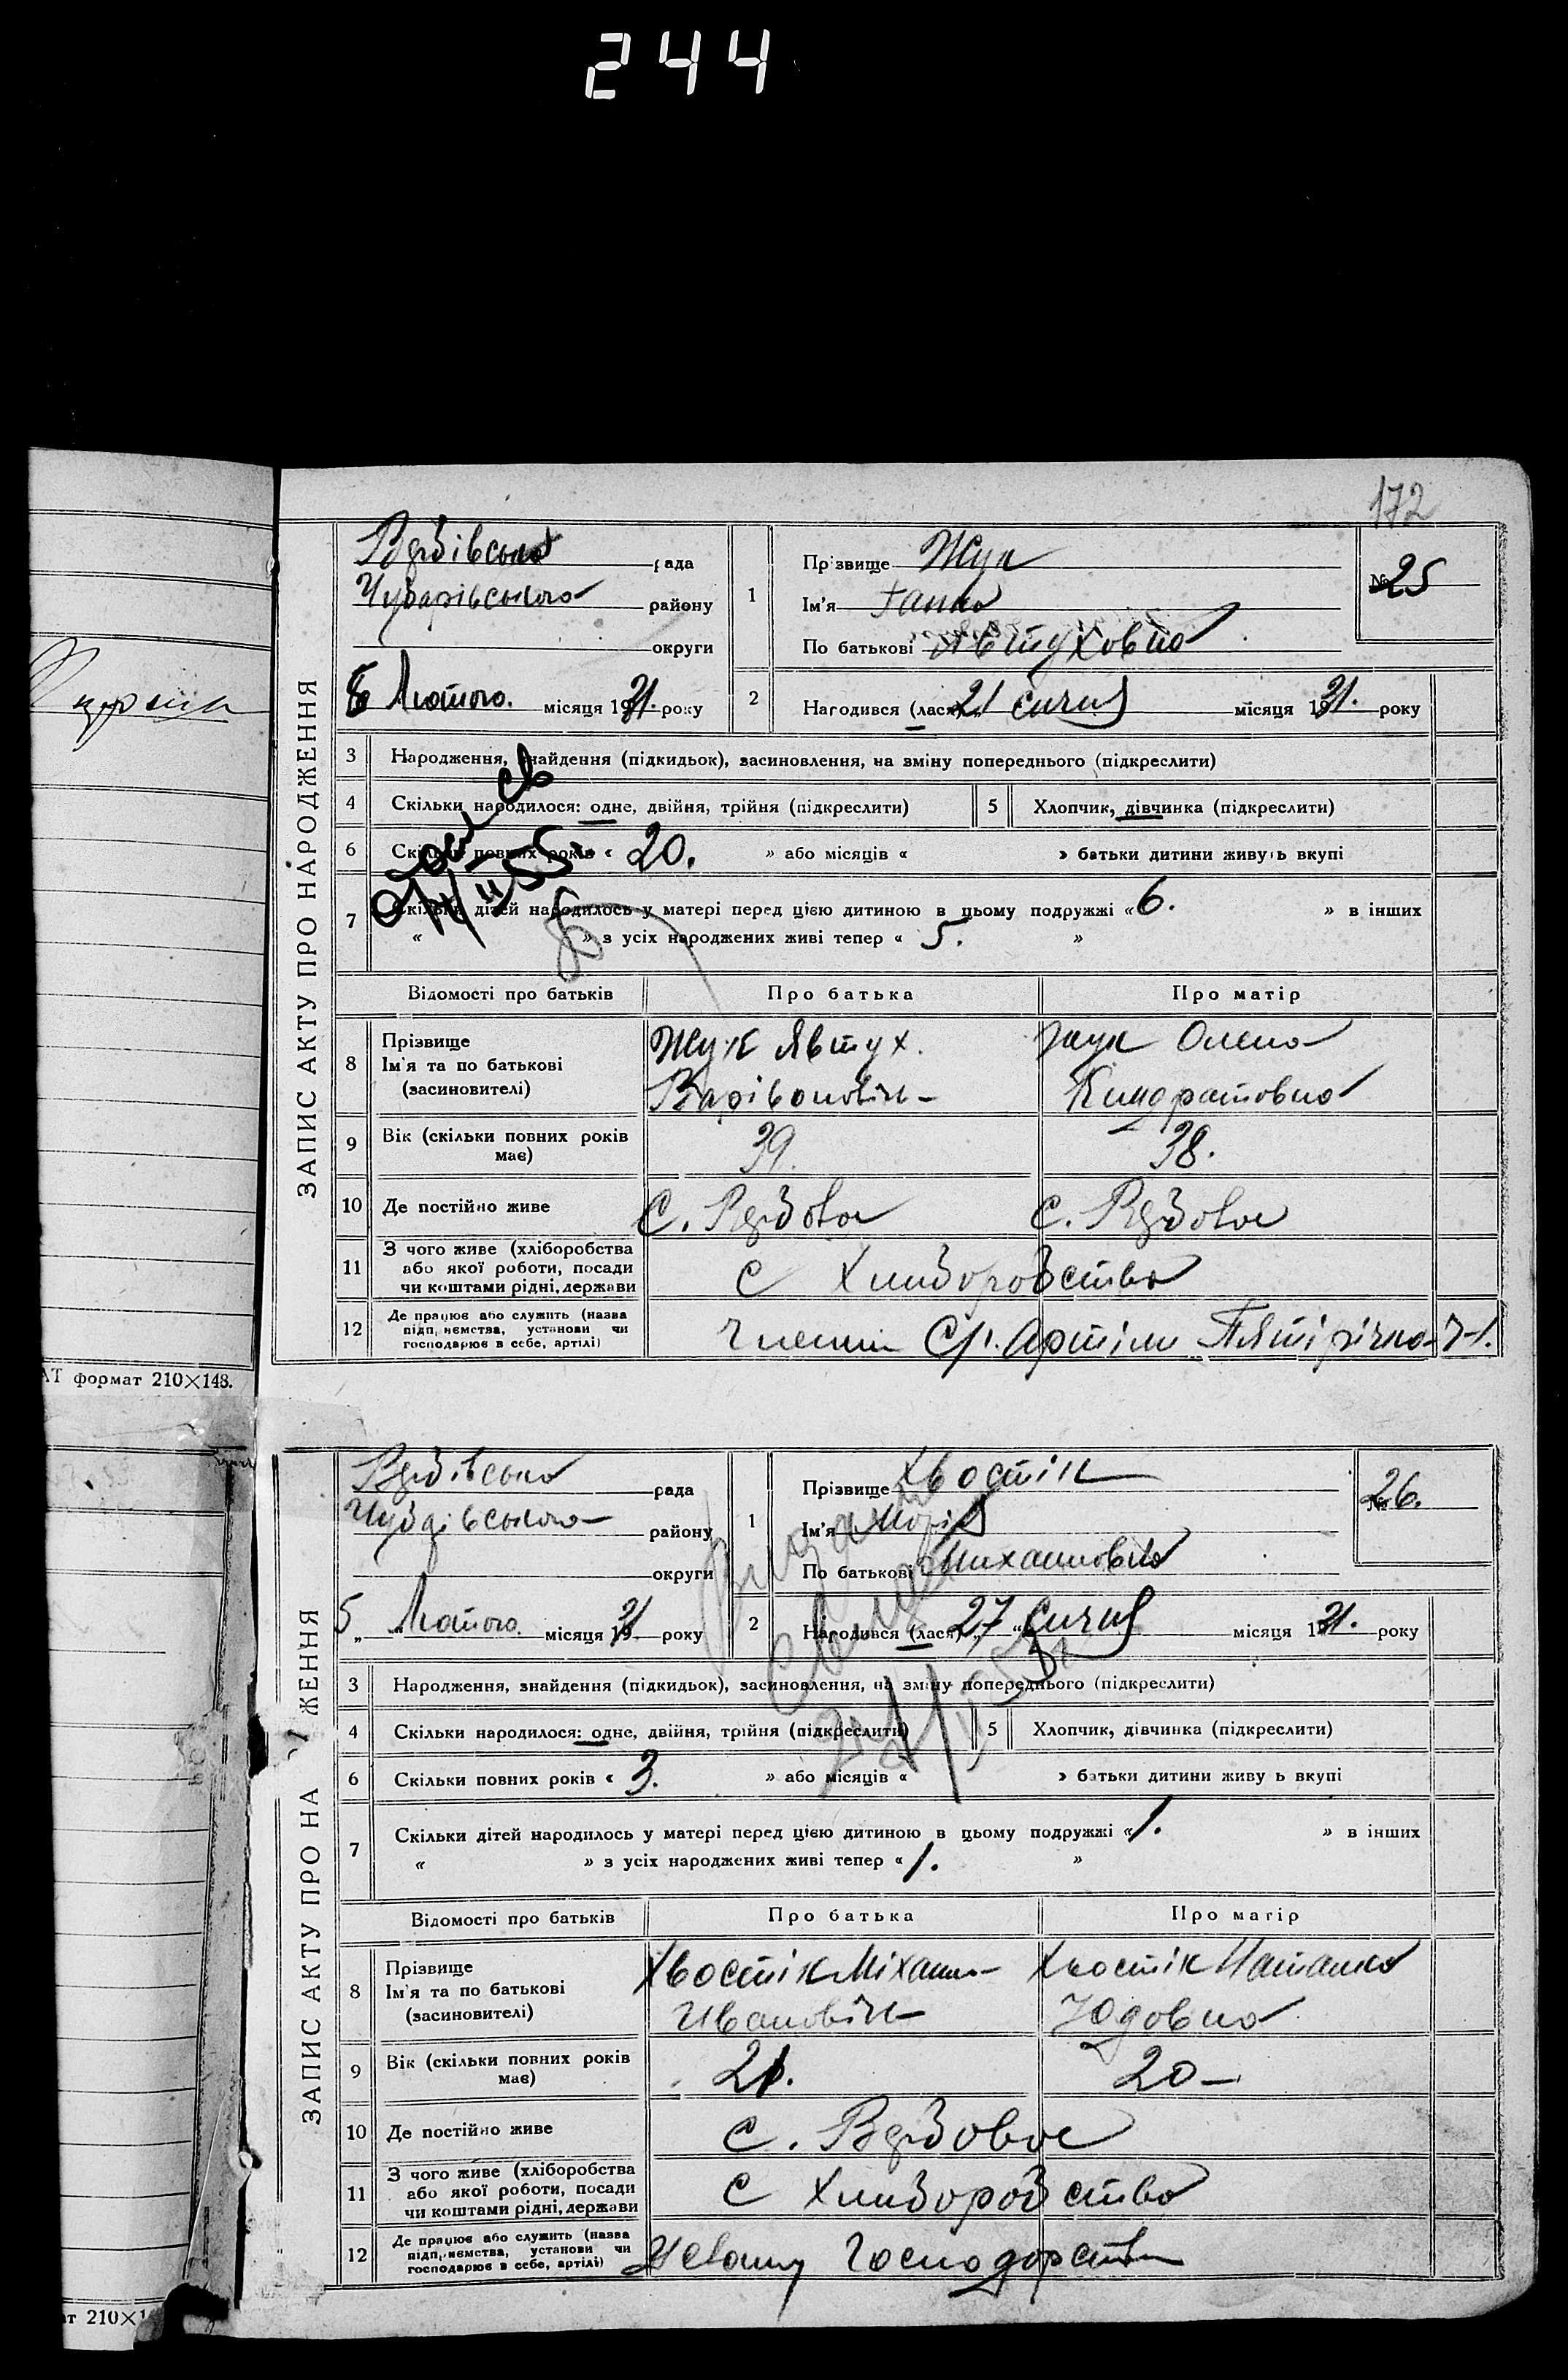 244
172
ЗАПИС АКТУ ПРО НАРОДЖЕННЯ
Вербівська рада
Чубарівського району
округи
Лютого місяця 1931. року
1
Прізвище Жук
Ім'я Ганна
По батькові Явтуховна
№ 25
2
Народився (лася) 21 Січня місяця 1931. року
3 Народження, знайдення (підкидьок), засиновлення, на зміну попереднього (підкреслити)
4 Скільки народилося: одне, двійня, трійня (підкреслити)
5 Хлопчик, дівчинка (підкреслити)
6 Скільки повних років « 20. » або місяців « » батьки дитини живуть вкупі
7 Скільки дітей народилось у матері перед цією дитиною в цьому подружжі « 6. » в інших
« » з усіх народжених живі тепер « 5. »
Відомості про батьків Про батька Про матір
8 Прізвище
Ім'я та по батькові
(засиновителі)
Жук Явтух. Жук Олена
Варівоновіч Киндратовна
9 Вік (скільки повних років має) 39. 38.
10 Де постійно живе С. Вербове С. Вербове
11 З чого живе (хліборобства
або якої роботи, посади
чи коштами рідні, держави
С Хлиборобства
12 Де працює або служить (назва
підприємства, установи чи
господарює в себе, артілі)
Члени С/г. Артіли Пятірічка
АТ формат 210×148.
ЗАПИС АКТУ ПРО НА ЖЕННЯ
Вербівська рада
Чубарівського району
округи
5 „ Лютого місяця 1931 року
1
Прізвище Хвостік
Ім'я Марія
По батькові Михайловна
№ 26.
2
Народився (лася) „ 27 “ Січня місяця 1931. року
3 Народження, знайдення (підкидьок), засиновлення, на зміну попереднього (підкреслити)
4 Скільки народилося: одне, двійня, трійня (підкреслити)
5 Хлопчик, дівчинка (підкреслити)
6 Скільки повних років « 3. » або місяців « » батьки дитини живу ь вкупі
7 Скільки дітей народилось у матері перед цією дитиною в цьому подружжі « 1. » в інших
« » з усіх народжених живі тепер « 1. »
Відомості про батьків Про батька Про матір
8 Прізвище
Ім'я та по батькові
(засиновителі)
Хвостік Міхайло Хвостік Наталка
Ивановіч Юдовна
9 Вік (скільки повних років має) 21. 20
10 Де постійно живе С. Вербове
11 З чого живе (хліборобства
або якої роботи, посади
чи коштами рідні, держави
С Хлиборобства
12 Де працює або служить (назва
підприємства, установи чи
господарює в себе, артілі)
У своиму Господарстви
ат 210×1